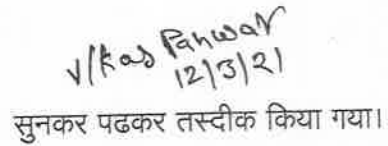 Vikas Panwar
12/3/21
सुनकर पढकर तस्दीक किया गया।